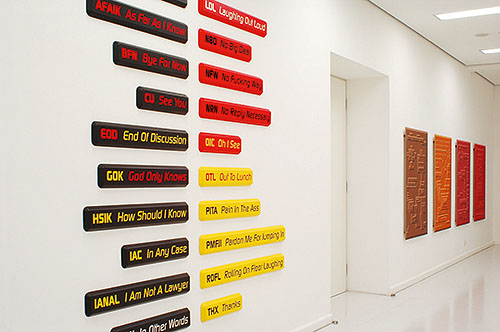 AFAIK As Far As I Know
BFN Bye For Now
CU See You
EOD End Of Discussion
GOK God Only Knows
HSIK How Should I Know
IAC In Any Case
IANAL I Am Not A Lawyer
In Other Words
LOL Laughing Out Loud
NBD No Big Deal
NFW No Fucking Way
NRN No Reply Necessary
OIC Oh I See
OTL Out To Lunch
PITA Pain In The Ass
PMFJI Pardon Me For Jumping In
ROFL Rolling On Floor Laughing
THX Thanks